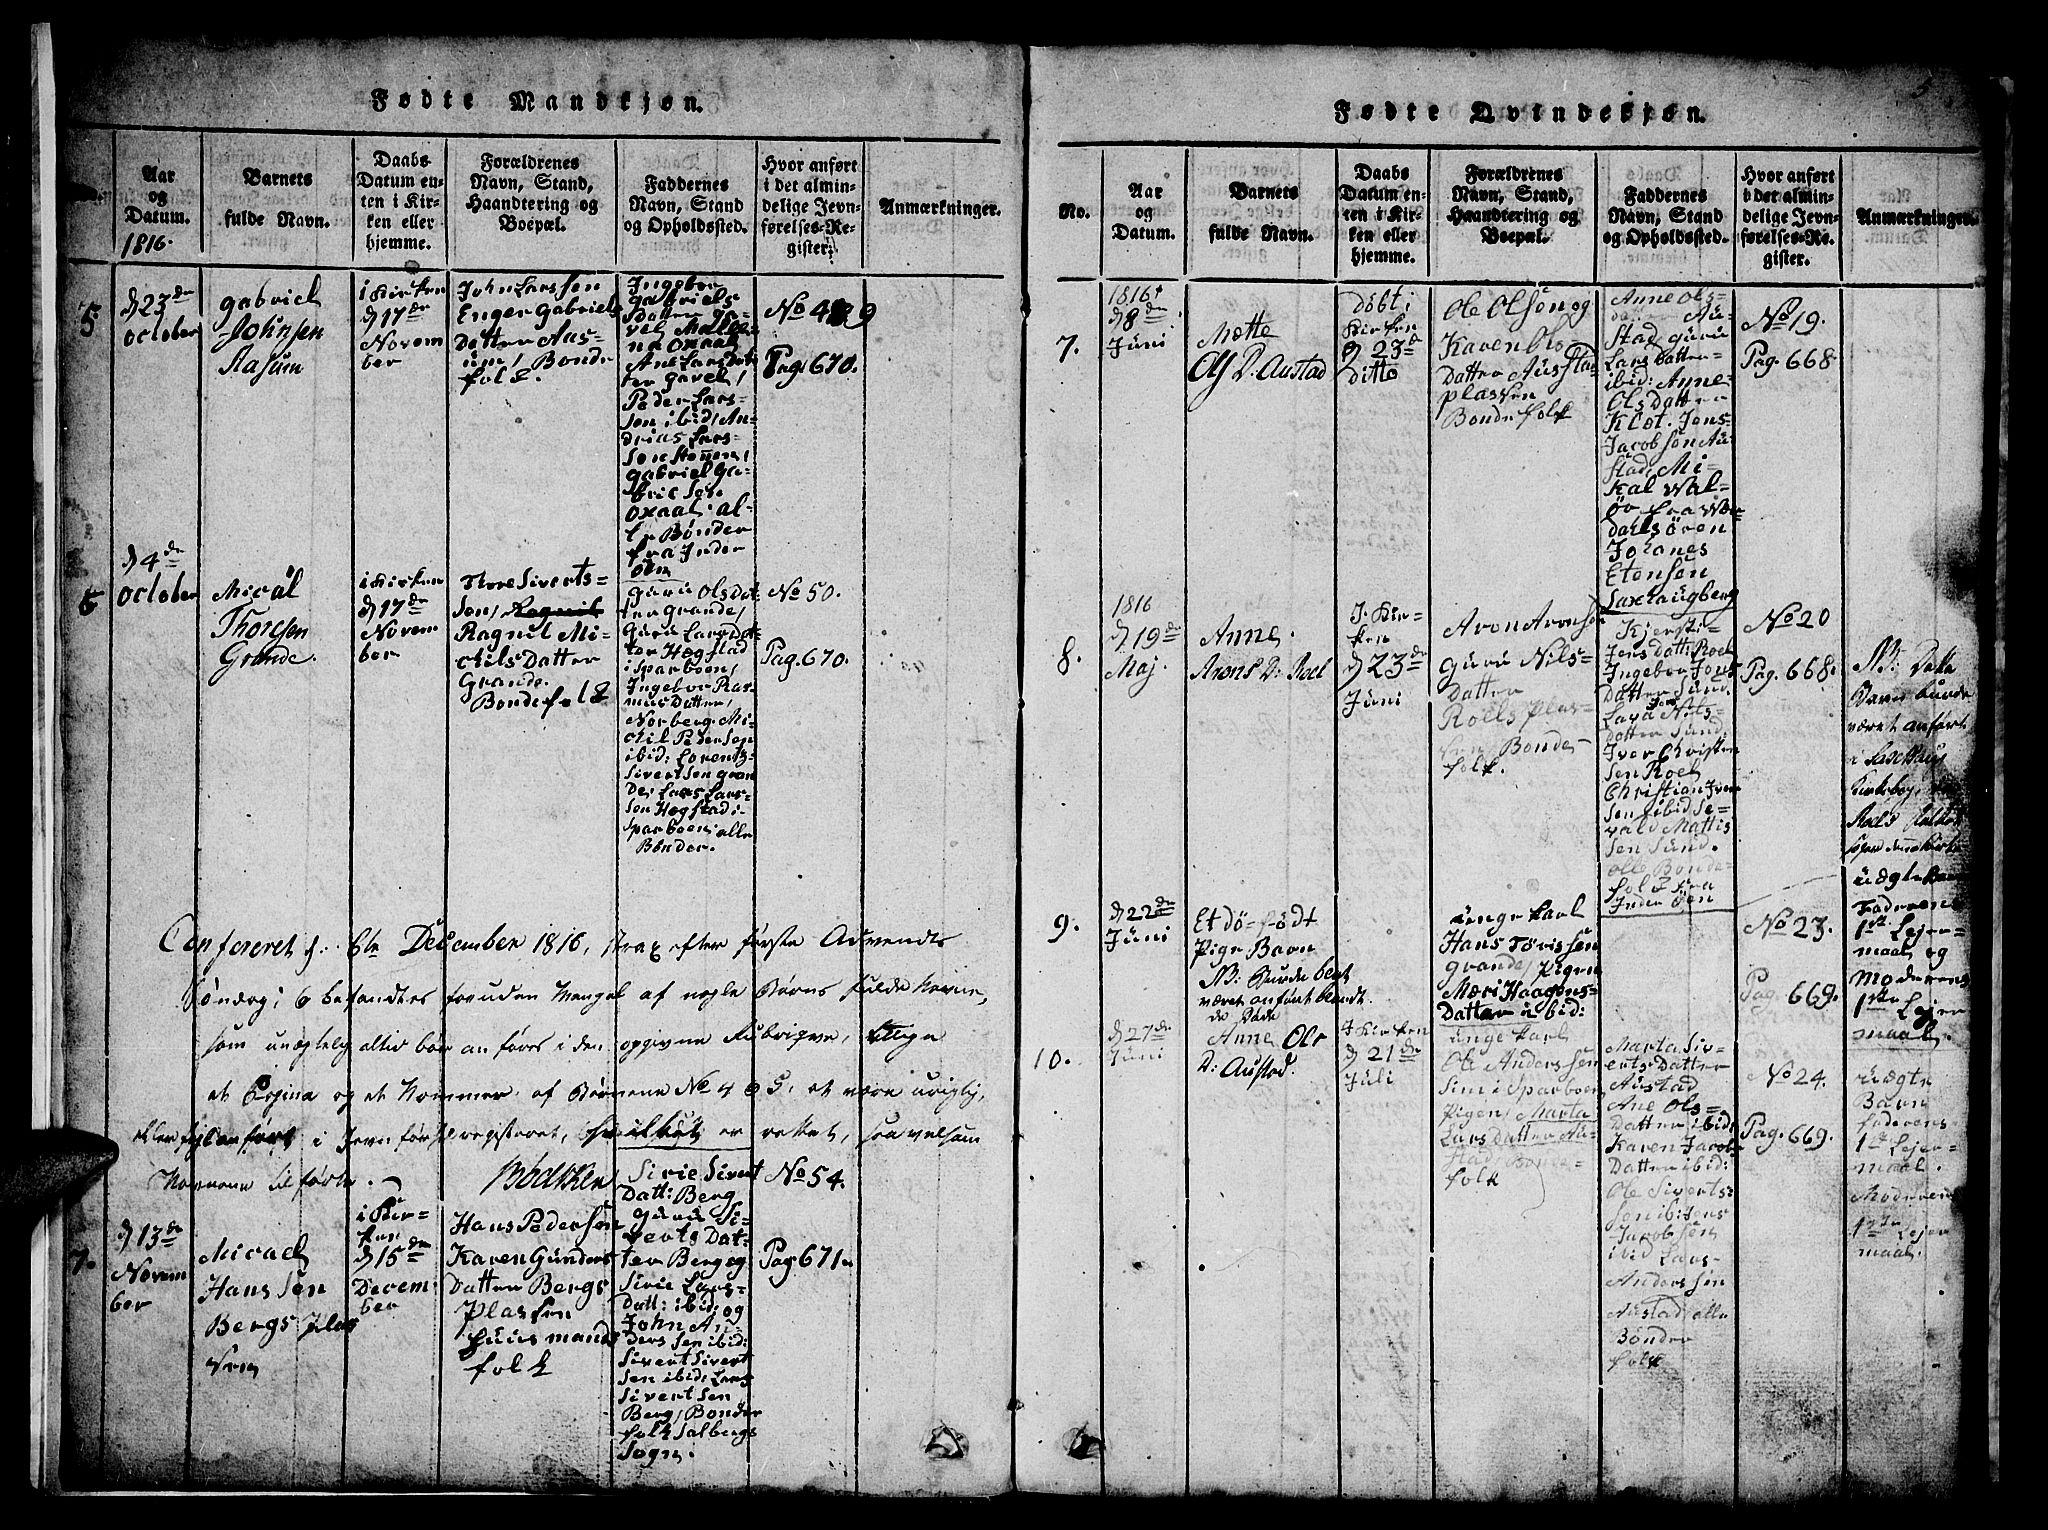 Fødte Mandkjøn.
Aar
og
Datum.
1816.
Barnets
fulde Navn.
Daabs
Datum en-
ten i Kir-
ken eller
hjemme.
Forældrenes
Navn, Stand,
Haandtering og
Boepæl.
Faddernes
Navn, Stand
og Opholdssted.
Hvor anført
i det almin-
delige Jevn-
førelses-Re-
gister.
Anmærkninger.
5
d 23de
October
Gabriel
Johnsen
Aasum
i Kirken
d 17de
Novem
ber
John Larssen
Enger Gabriels
Datter Aas-
um, Bonde
folk.
Ingebor
Gabriels
Datter Ga-
vel
na Oxaal
Ane Larsdat
ter Gavel,
Peder Lars-
Søn ibid, An-
drias Lars-
Søn
Gabriel Ga-
briel Søn
Oxaal. al-
le Bønder
fra Inder
øen
No 49
Pag. 670.
6
d 4de
October
Micäl
Thoresen
Grande.
i Kirken
d 17de
Novem
ber
Thore Siverts-
Søn,
Ragnil Mi-
chils Datter
Grande.
Bondefolk
Guru Olsdat
ter Grande,
Guru Larsdat-
ter Hegstad
i Sparboen,
Ingebor Ras-
mus Datter,
Norberg. Mi-
chil Peder Søn
ibid: Lorentz
Sivertsen Gran
de, Lars Lars-
sen Hegstad i
Sparboen, alle
Bønder.
No 50.
Pag. 670.
Confereret d: 6te December 1816, strax efter første Advendts
Søndag; befandtes foruden Mangel af nogle Børns fulde Navne,
som unægtelig altid bør anføres i den opgivne Rubrique, tillige
et Pagina og et Nommer af Børnene No 4 og 5, at være urigtig
anført i Jevnførselregisteret, hvilket er rettet, saavelsom
Navnene tilførte.
7.
d 13de
Novem
ber
Micael
Hanssen
Bergs plas
sen
i Kir-
ken
d 15de
Decem
ber
Hans Pedersen
Karen Gunders
Datter Bergs
Plassen
Huusmands
folk
Sirie Sivert
Datt: Berg
Guru Si-
verts Dat-
ter Berg og
Sirie Lars-
Datt: ibid: og
John An-
ders Sen ibid:
Sivert Sivert
Sen ibid: Lars
Sivert Sen
Berg, Bonder
folk Salbergs
Sogn.
No 54.
Pag. 671.
5
Fødte Qvindekjøn.
No.
Aar
og
Datum.
Barnets
fulde Navn.
Daabs
Datum en-
ten i Kir-
ken eller
hjemme.
Forældrenes
Navn, Stand,
Haandtering og
Boepæl.
Faddernes
Navn, Stand
og Opholdssted.
Hvor anført
i det almin-
delige Jevn-
førelses-Re-
gister.
Anmærkninger.
7.
1816
d 8de
Juni
Mette
Ols D. Austad
døbt i
Kirken
d 23de
ditto
Ole Olsøn og
Karen Ols
Datter Austad
plassen
Bondefolk
Anne Ols-
datter Au-
Stad, Guru
Lars Datter
ibid: Anne
Ols Datter
Jens
Jacobsøn Au-
stad, Mi-
kal Wal-
ør fra Wær
dahlsøren
Johanes
Etensen
Saxhaugberg
No 19.
Pag. 668
8.
1816
d 19de
Maj.
Anne.
Arons D: Roel
I Kir-
ken
d 23de
Juni
Aron Aronsøn
Guru Nils-
Datter
Roels plas-
sen Bonde-
folk.
Kjersti
Jens Datt: Roel
Ingebor Jons
Datter Sund.
Datter Sund.
Iver Christen
Sen Roel
Christian Iver
Sen ibid Se-
vald Mattis
Sen Sund.
alle Bonde-
folk fra
Inderøen
No 20
Pag. 668.
NB: Dette
Barn burde
været anført
i Saxhaug
Kirkebog,
9.
d 22de
Juni
Et dødfødt
Pige Barn
NB: Burde
været anført blandt
de Døde
Unge karl
Hans Tørrissen
Grande, Pigen
Mæri Haagens-
Datter ibid:
No 23.
Pag. 669.
Uægte Barn
Faderens
1ste Lejer-
maal og
Moderens
1ste Lejer
maal.
10.
d 27de
Juni
Anne Ols
D: Austad.
I Kirken
d 21de
Juli
Unge karl
Ole Anderssen
Sim i Sparboen
Pigen, Marta
Lars Datter Au-
stad, Bonde-
folk
Marta Siv-
erts Datter
Austad
Ane Ols-
Datter ibid:
Karen Jacob
Datter ibid:
Ole Siverts-
Sen ibid: Jens
Jacobsen
ibid Lars-
Anderssen
Austad alle
Bønder
folk
No 24.
Pag. 669.
Uægte
Barn
faderens
1ste Lejer-
maal.
Moderens
1ste Lejer
maal.